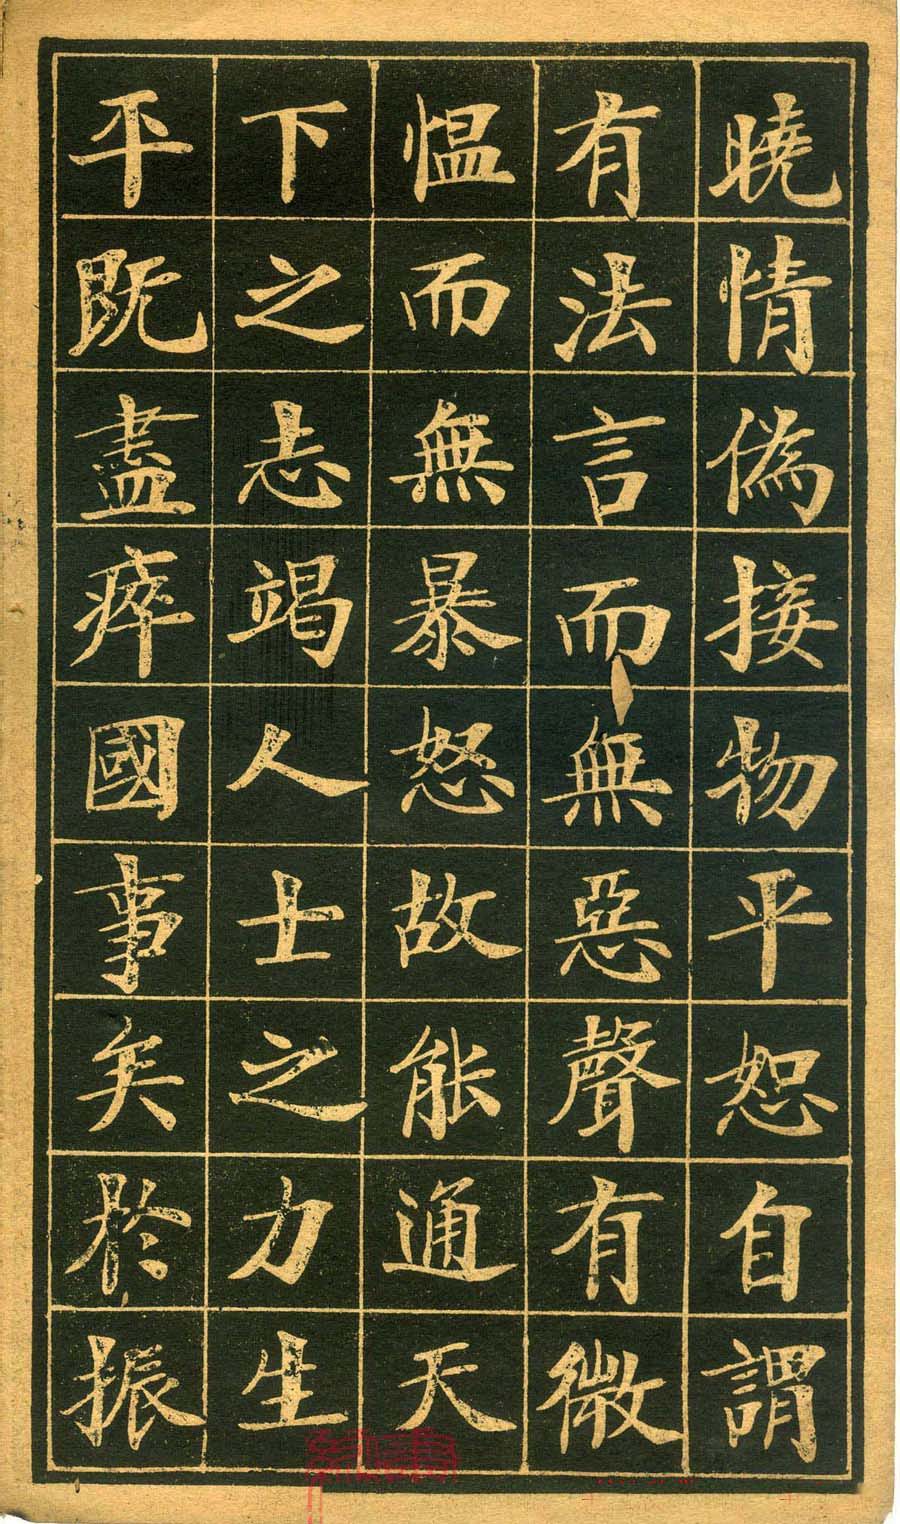 曉情偽接物平恕自謂
有法言而無惡聲有微
愠而無暴怒故能通天
下之志竭人士之力生
平既盡瘁國事矣於振